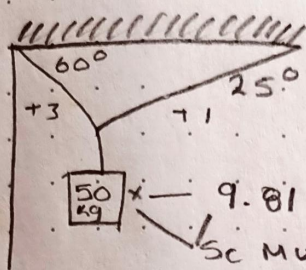 60°
25°
+3
+1
50
kg
x — 9.81
Sc Mu